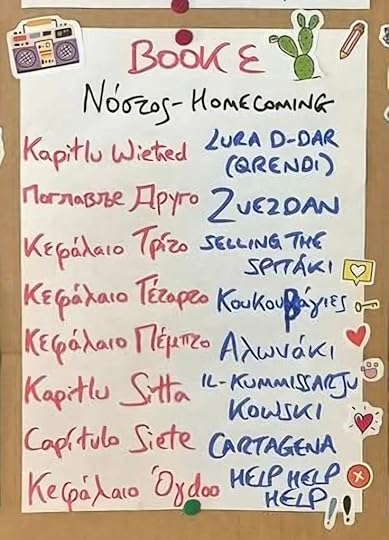 BOOK E
Νόστος - HOMECOMING
Kapitlu Wieħed LURA D-DAR
(QRENDI)
Поглавље Друго ZUEZDAN
Κεφάλαιο Τρίτο SELLING THE
SPITÁKI
Κεφάλαιο Τέταρτο Κουκουβάγιες
Κεφάλαιο Πέμπτο Αλωνάκι
Kapitlu Sitta IL-KUMMISSARJU
KOWSKI
Capítulo Siete CARTAGENA
Κεφάλαιο Όγδοο HELP HELP
HELP